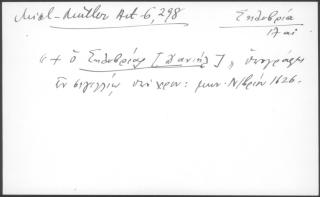 Micl-Müller Act 6, 298 Σηλυβρία
17 αι
"+ ὁ Σηλυβρίας [Δανιήλ] „ ὑπογράφει
ἐν σιγιλλίῳ ὑπὸ χρον: μην. Ν/βρίου 1626.